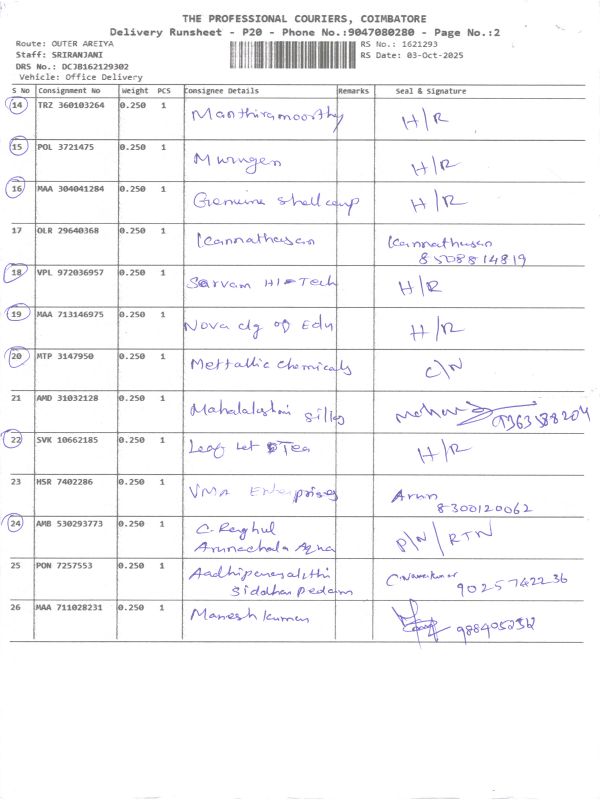 THE PROFESSIONAL COURIERS, COIMBATORE
Delivery Runsheet - P20 - Phone No.:9047080280 - Page No.:2
Route: OUTER AREIYA RS No.: 1621293
Staff: SRIRANJANI RS Date: 03-Oct-2025
DRS No.: DCJB162129302
Vehicle: Office Delivery
S No Consignment No Weight PCS Consignee Details Remarks Seal & Signature
14 TRZ 360103264 0.250 1 Manthiramoorthy H/R
15 POL 3721475 0.250 1 Murugen H/R
16 MAA 304041284 0.250 1 Genuine Shell H/R
17 OLR 29640368 0.250 1 Kannathasan Kannathasan
8508814819
18 VPL 972036957 0.250 1 Sarvam HI-Tech H/R
19 MAA 713146975 0.250 1 Nova clg of Edu H/R
20 MTP 3147950 0.250 1 Mettallic Chemicals C/N
21 AMD 31032128 0.250 1 Mahalakshmi Silks
22 SVK 10662185 0.250 1 Leaf Let Tea H/R
23 HSR 7402286 0.250 1 VMA Enterprises Arun
8300120062
24 AMB 530293773 0.250 1 C. Raghul P/N / RTN
Arunachala
25 PON 7257553 0.250 1
Siddhar Pedam 9025742236
26 MAA 711028231 0.250 1 Manesh kumar